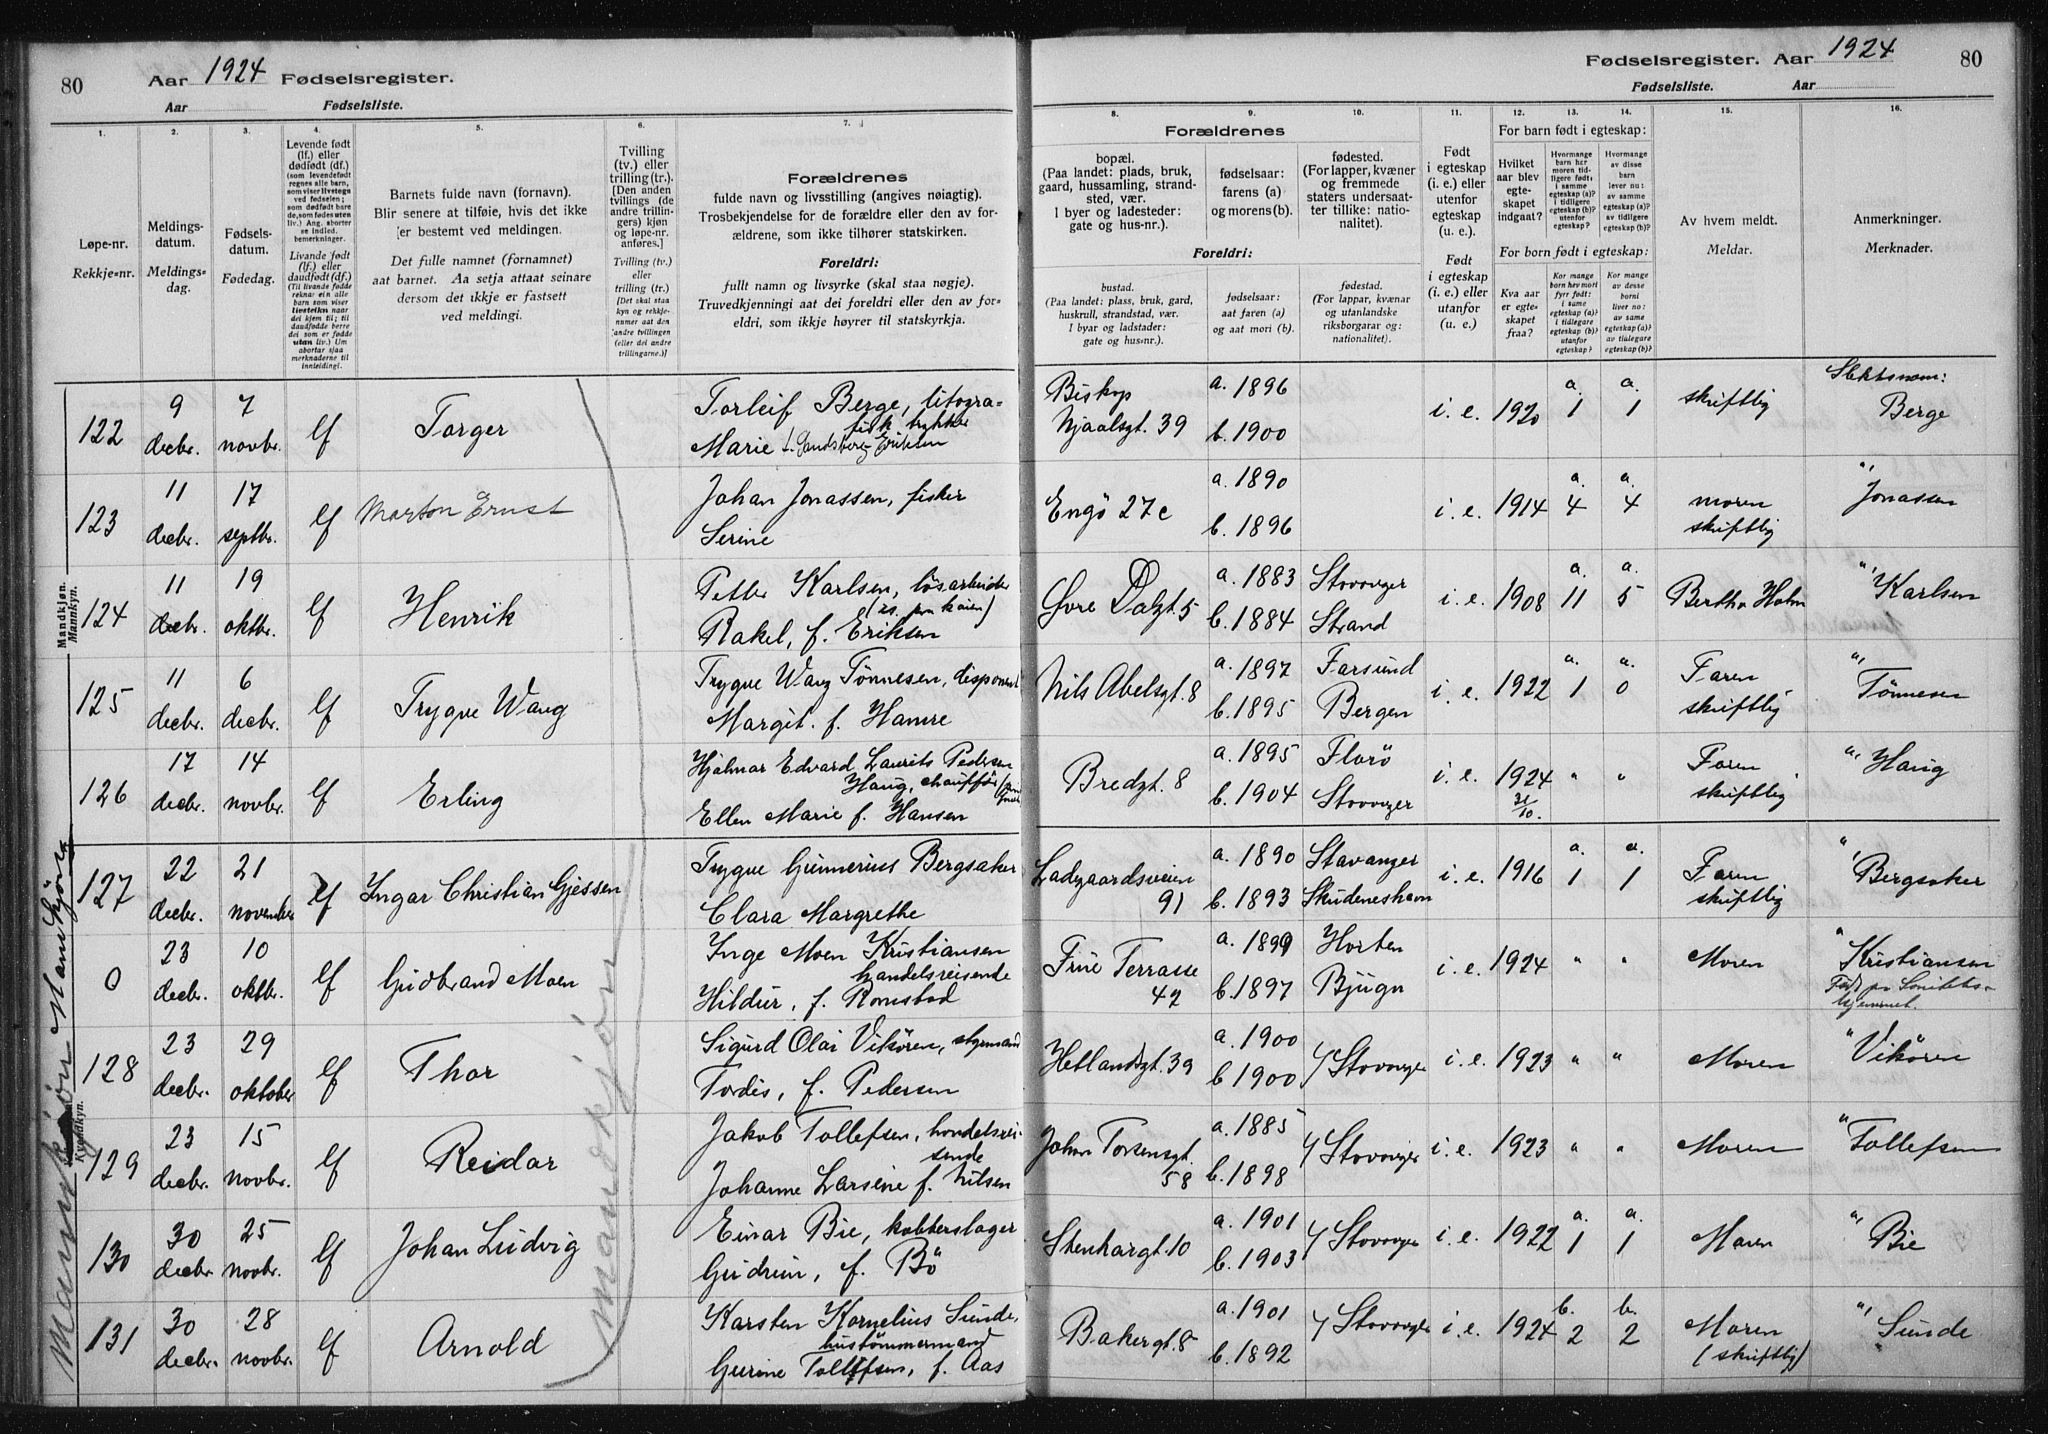 80 Aar 1924 Fødselsregister.
Aar Fødselsliste.
Fødselsregister. Aar 1924 80
Fødselsliste. Aar
1. 2. 3. 4. 5. 6. 7.
Løpe-nr.
Rekkje=nr.
Meldings-
datum.
Meldings=
dag.
Fødsels-
datum.
Fødedag.
Levende født
(lf.) eller
dødfødt (df.)
(som levendefødt
regnes alle barn,
som viser livstegn
ved fødselen;
som dødfødt bare
de, som fødes uten
liv.) Ang. aborter
se indled.
bemerkninger.
Livande født
(lf.) eller
daudfødt (df.)
(Til livande fødde
rekna= ein alle
barn som viser
livsteikn naar
dei kjem til; til
daudfødde berre
dei som er fødde
utan liv.) Um
abortar sjaa
merknaderne til
innleiding!
Barnets fulde navn (fornavn).
Blir senere at tilføie, hvis det ikke
[er bestemt ved meldingen.
Det fulle namnet (fornamnet)
aat barnet. Aa setja attaat seinare
dersom det ikkje er fastsett
ved meldingi.
Tvilling
(tv.) eller
trilling (tr.).
[Den anden
tvillings (de
andre trillin-
gers) kjøn
og løpe-nr.
anføres.]
Tvilling (tv.)
eller
trilling (tr.)
[Det skal staa
kyn og rekkje-
nummer aat den
andre tvillingen
(eller dei andre
trillingarne.)]
Forældrenes
fulde navn og livsstilling (angives nøiagtig).
Trosbekjendelse for de forældre eller den av for-
ældrene, som ikke tilhører statskirken.
Foreldri:
fullt namn og livsyrke (skal staa nøgje).
Truvedkjenningi aat dei foreldri eller den av for=
eldri, som ikkje høyrer til statskyrkja.
8. 9. 10. 11. 12. 13. 14. 15. 16.
Forældrenes
bopæl.
(Paa landet: plads, bruk,
gaard, hussamling, strand-
sted, vær.
I byer og ladesteder:
gate og hus-nr.).
Foreldri:
bustad.
(Paa landet: plass, bruk, gard,
huskrull, strandstad, vær.
I byar og ladstader:
gate og hus=nr.).
fødselsaar:
farens (a)
og morens (b).
fødselsaar:
aat faren (a)
og aat mori (b).
fødested.
(For lapper, kvæner
og fremmede
staters undersaat-
ter tillike: natio-
nalitet).
fødestad.
(For lappar, kvænar
og utanlandske
riksborgarar og:
nationalitet).
Født
i egteskap
(i. e.) eller
utenfor
egteskap
(u. e.).
Født
i egteskap
(i. e.) eller
utanfor
(u. e.).
For barn født i egteskap:
Hvilket
aar blev
egte-
skapet
indgaat?
Hvormange
barn har
moren tid-
ligere født:
i samme
egteskap (a)?
i tidligere
egteskap (b)?
utenfor
egteskap?
Hvormange
av disse
barn
lever nu:
av samme
egteskap (a)?
av tidligere
egteskap (b)?
For born født i egteskap:
Kva aar
er egte-
skapet
fraa?
Kor mange
born hev mori
fyrr født:
i same
egteskap (a)?
i tidlegare
egteskap (b)?
utanfor
egteskap?
Kor mange
av desse
borni
liver no:
av same
egteskap (a)?
av tidlegare
egteskap (b)?
Av hvem meldt.
Meldar.
Anmerkninger.
Merknader.
Mandkjøn.
Mankyn.
Kvindkyn.
Mannkjøn
mandkjøn
122 9 decbr. 7 novbr. lf Torger
Torleif Berge, litogra-
fisk trykker
Marie f. Sandsberg Eriksen
Biskop
Njaalsgt. 39 a. 1896 b. 1900 i. e. 1920 a. 1 a. 1 skriftlig Slektsnavn: Berge
123 11 decbr. 17 septbr. lf Morton Ernst
Johan Jonassen, fisker
Serine
Engö 27c a. 1890 b. 1896 i. e. 1914 a. 4 a. 4 moren skriftlig " Jonassen
124 11 decbr. 19 oktbr. lf Henrik
Petter Karlsen, løsarbeider
Rakel, f. Eriksen
Øvre Dalgt. 5 a. 1883 b. 1884 Stavanger Strand i. e. 1908 a. 11 a. 5 Bertha Holm " Karlsen
125 11 decbr. 6 decbr. lf Trygve Wang
Trygve Wang Tönnesen, disponent
Margit. f. Hamre
Nils Abelsgt. 8 a. 1897 b. 1895 Farsund Bergen i. e. 1922 a. 1 a. 0 Faren skriftlig " Tönnesen
126 17 decbr. 14 novbr. lf Erling
Hjalmar Edvard Laurits Pedersen
Haug, chauffør
Ellen Marie f. Hansen
Bredgt. 8 a. 1895 b. 1904 Florö Stavanger i. e. 1924 31/10. " " Faren skriftlig " Haug
127 22 decbr. 21 november lf Yngar Christian Gjessen
Trygve Gunnerius Bergsaker
Clara Margrethe
Ladegaardsveien
91 a. 1890 b. 1893 Stavanger Skudeneshavn i. e. 1916 a. 1 a. 1 Faren skriftlig " Bergsaker
0 23 decbr. 10 oktbr. lf Gudbrand Moen
Inge Moen Kristiansen
handelsreisende
Hildur, f. Romstad
Frue Terrasse
42 a. 1899 b. 1897 Horten Bjugn i. e. 1924 " " Moren " Kristiansen
Født på Sanitets-
hjemmet.
128 23 decbr. 29 oktober lf Thor
Sigurd Olai Vikören, styrmand
Tordis, f. Pedersen
Hetlandsgt. 39 a. 1900 b. 1900 Stavanger i. e. 1923 " " Moren " Vikören
129 23 decbr. 15 novbr. lf Reidar
Jakob Tollefsen, handelsrei-
sende
Johanne Larsine f. Nilsen
Johan Torsensgt.
58 a. 1885 b. 1898 Stavanger i. e. 1923 " " Moren " Tollefsen
130 30 decbr. 25 novbr. lf Johan Ludvig
Einar Bie, kobberslager
Gudrun, f. Bö
Stenhargt. 10 a. 1901 b. 1903 Stavanger i. e. 1922 a. 1 a. 1 Moren " Bie
131 30 decbr. 28 novbr. lf Arnold
Karsten Kornelius Sunde,
hustömmermand
Gurine Tollefsen, f. Aas
Bakergt. 8 a. 1901 b. 1892 Stavanger i. e. 1924 b. 2 b. 2 Moren (skriftlig) " Sunde